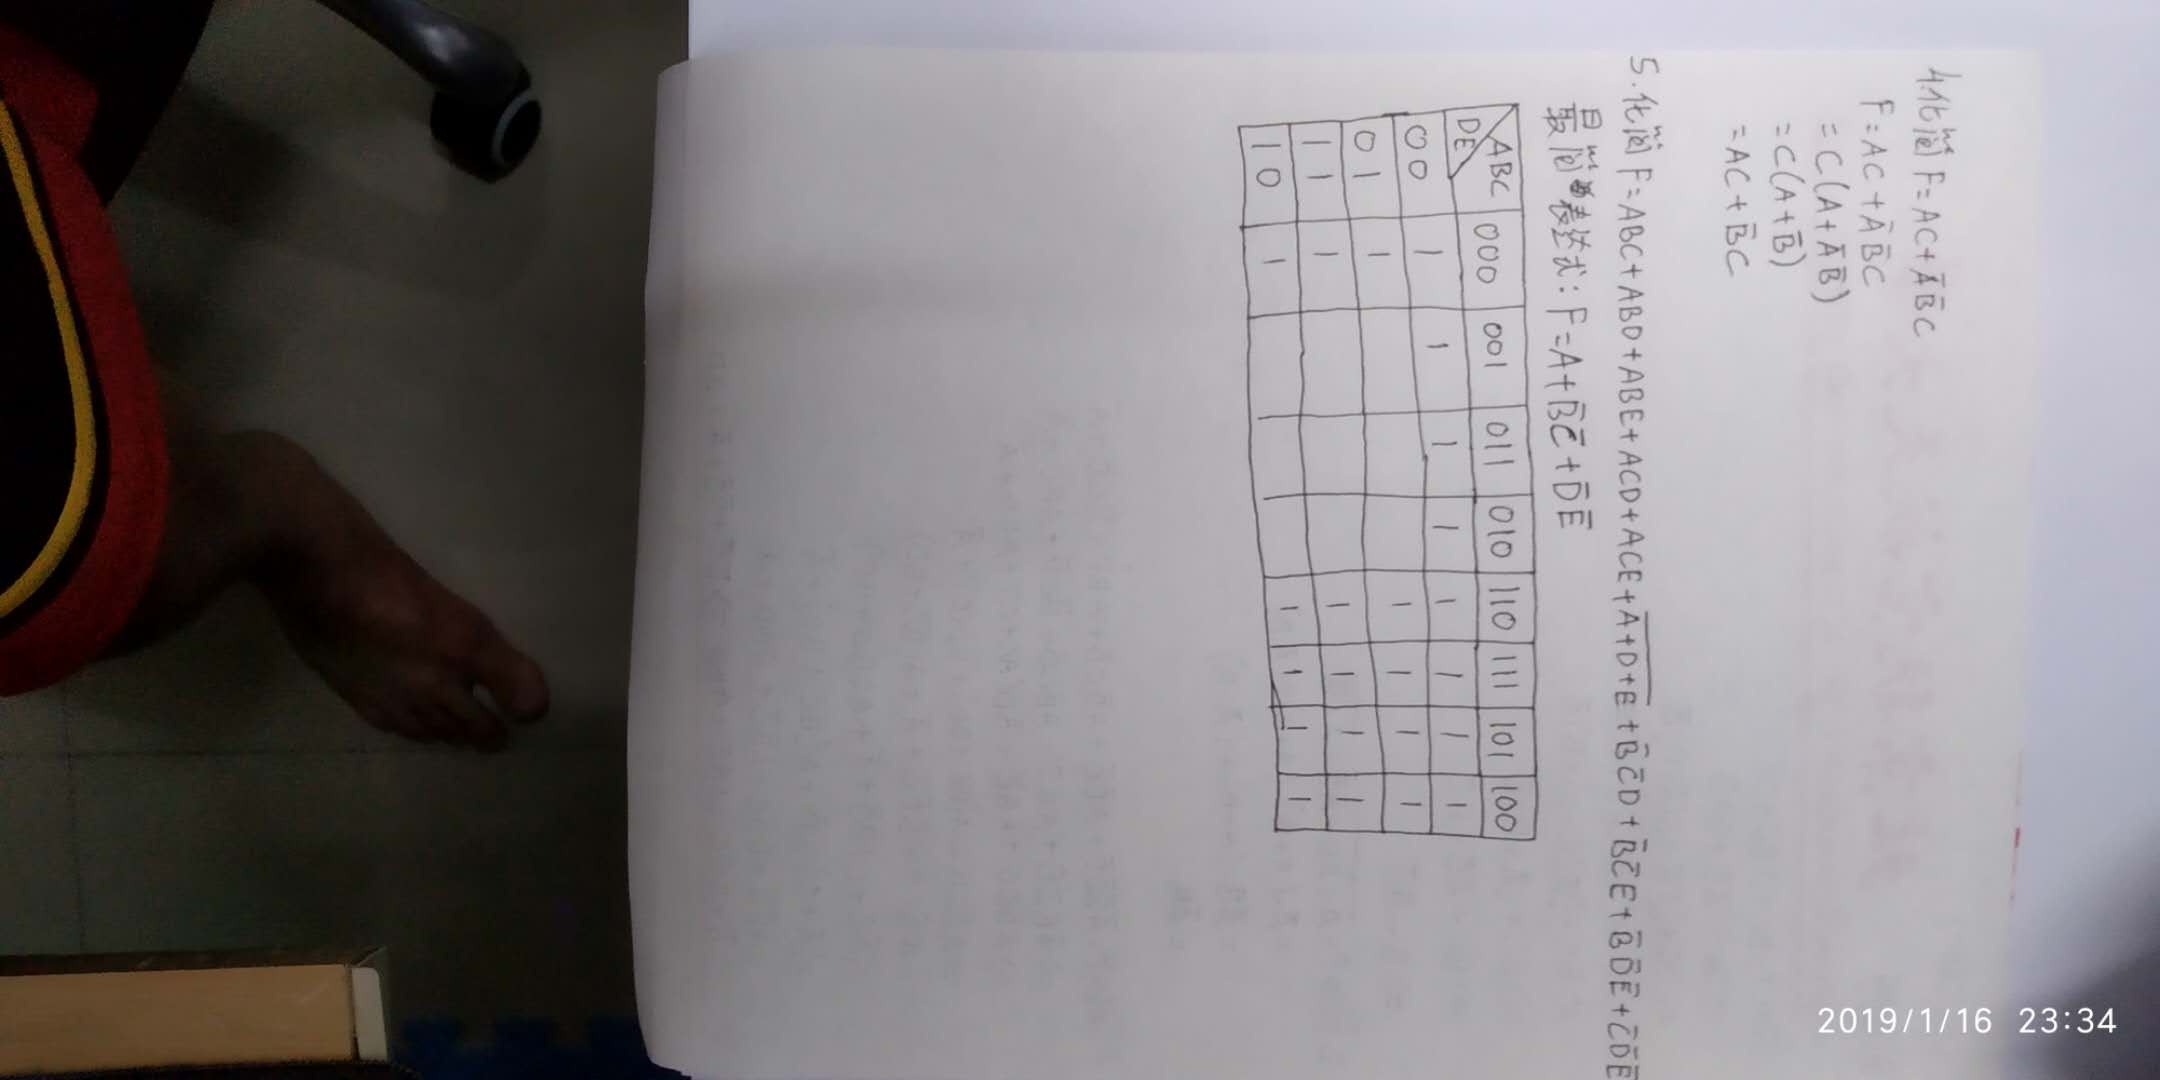 4.化简 F=AC+ĀB̄C
F=AC+ĀB̄C
=C(A+ĀB̄)
=C(A+B̄)
=AC+B̄C
5.化简 F=ABC+ABD+ABE+ACD+ACE+\overline{A+D+E}+B̄C̄D+B̄C̄E+B̄D̄Ē+C̄D̄Ē
最简表达式: F=A+B̄C̄+D̄Ē
DE ABC 000 001 011 010 110 111 101 100
00 1 1 1 1 1 1 1 1
01 1 1 1 1 1
11 1 1 1 1 1
10 1 1 1 1 1
2019/1/16 23:34